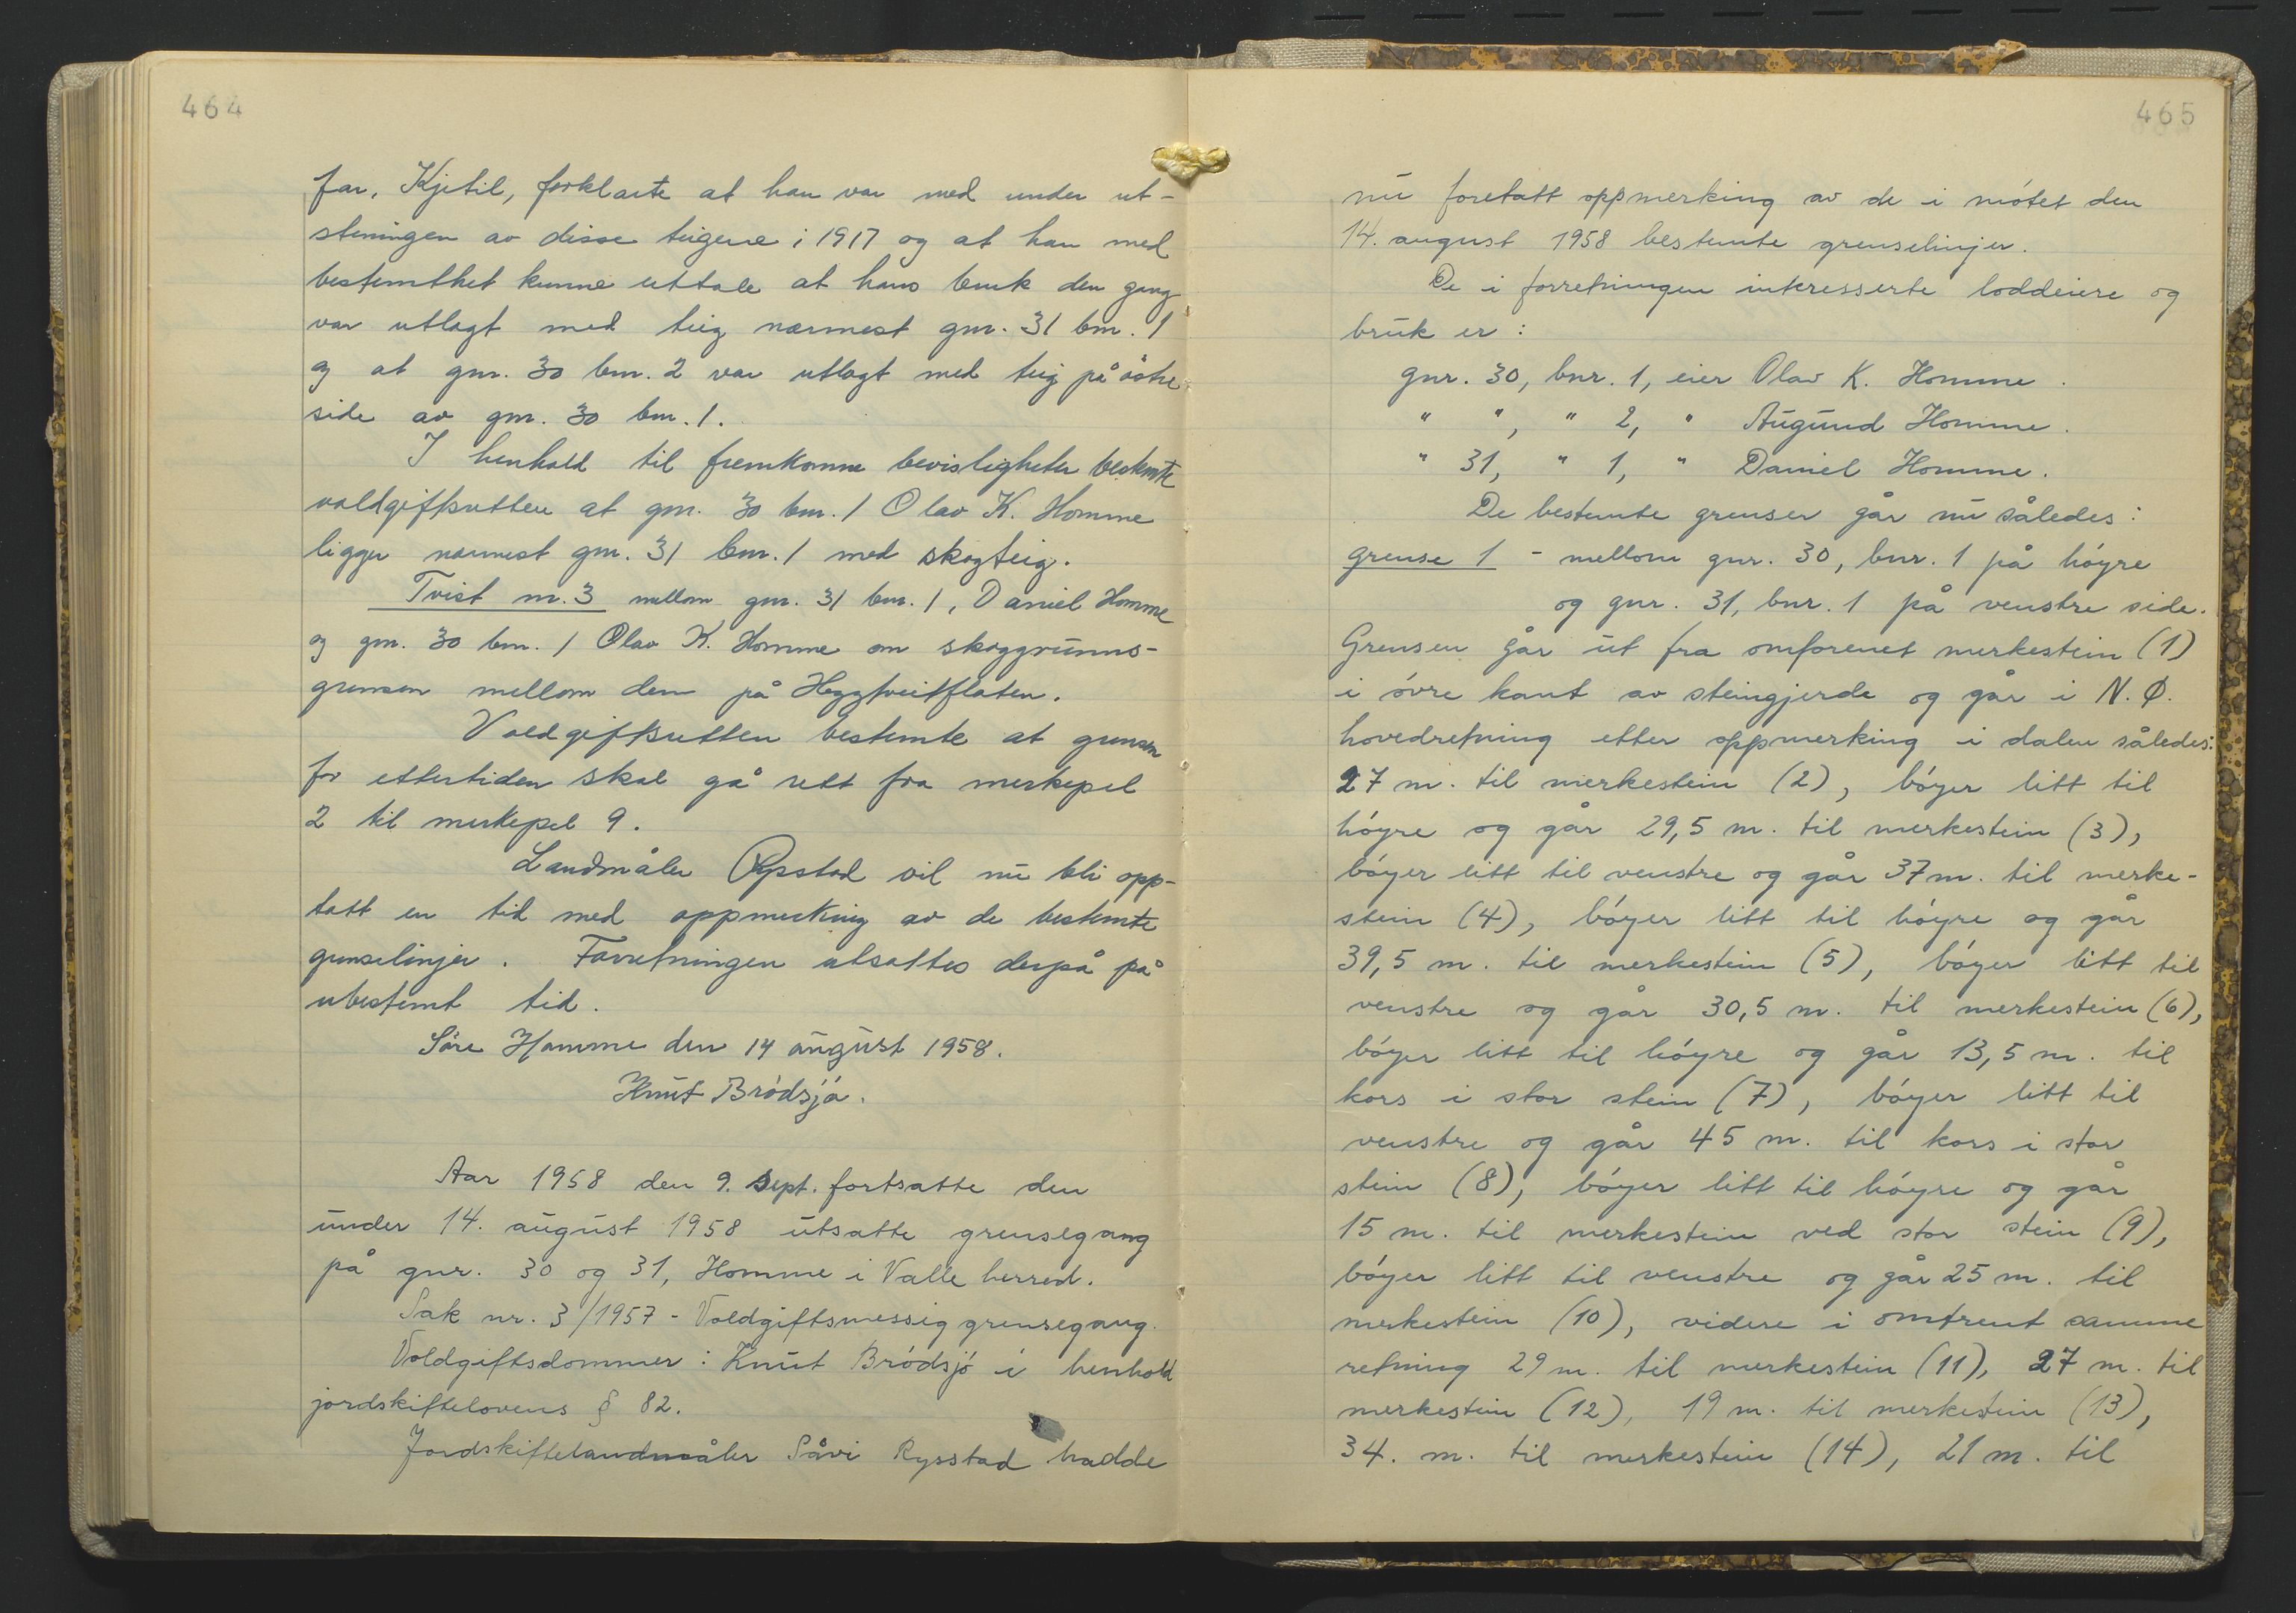 464
far, Kjetil, forklarte at han var med under ut-
steningen av disse teigene i 1917 og at han med
bestemthet kunne uttale at hans bruk den gang
var utlagt med teig nærmest gnr. 31 bnr. 1
og at gnr. 30 bnr. 2 var utlagt med teig på östre
side av gnr. 30 bnr. 1.
I henhold til fremkomne bevisligheter bestemte
voldgiftsretten at gnr. 30 bnr. 1 Olav K. Homme
ligger nærmest gnr. 31 bnr. 1 med skogteig.
Tvist nr. 3 mellom gnr. 31 bnr. 1, Daniel Homme
og gnr. 30 bnr. 1 Olav K. Homme om skoggrunns-
grensen mellom dem på Heggtveitflaten.
Voldgiftsretten bestemte at grensen
for ettertiden skal gå rett fra merkepel
2 til merkepel 9.
Landmåler Rysstad vil nu bli opp-
tatt en tid med oppmerking av de bestemte
grenselinjer. Forretningen utsattes derpå på
ubestemt tid.
Söre Homme den 14 august 1958.
Knut Brödsjö.
Aar 1958 den 9. sept. fortsatte den
under 14. august 1958 utsatte grensegang
på gnr. 30 og 31, Homme i Valle herred.
Sak nr. 3/1957 - Voldgiftsmessig grensegang.
Voldgiftsdommer: Knut Brödsjö i henhold
jordskiftelovens § 82.
Jordskiftelandmåler Såvi Rysstad hadde
465
nu foretatt oppmerking av de i mötet den
14. august 1958 bestemte grenselinjer.
De i forretningen interesserte loddeiere og
bruk er:
gnr. 30, bnr. 1, eier Olav K. Homme.
" ", " 2, " Augund Homme.
" 31, " 1, " Daniel Homme.
De bestemte grenser går nu således:
grense 1 - mellom gnr. 30, bnr. 1 på höyre
og gnr. 31, bnr. 1 på venstre side.
Grensen går ut fra omforenet merkestein (1)
i övre kant av steingjerde og går i N.Ø.
hovedretning etter oppmerking i dalen således:
27 m. til merkestein (2), böyer litt til
höyre og går 29,5 m. til merkestein (3),
böyer litt til venstre og går 37 m. til merke-
stein (4), böyer litt til höyre og går
39,5 m. til merkestein (5), böyer litt til
venstre og går 30,5 m. til merkestein (6),
böyer litt til höyre og går 13,5 m. til
kors i stor stein (7), böyer litt til
venstre og går 45 m. til kors i stor
stein (8), böyer litt til höyre og går
15 m. til merkestein ved stor stein (9),
böyer litt til venstre og går 25 m. til
merkestein (10), videre i omtrent samme
retning 29 m. til merkestein (11), 27 m. til
merkestein (12), 19 m. til merkestein (13),
34. m. til merkestein (14), 21 m. til